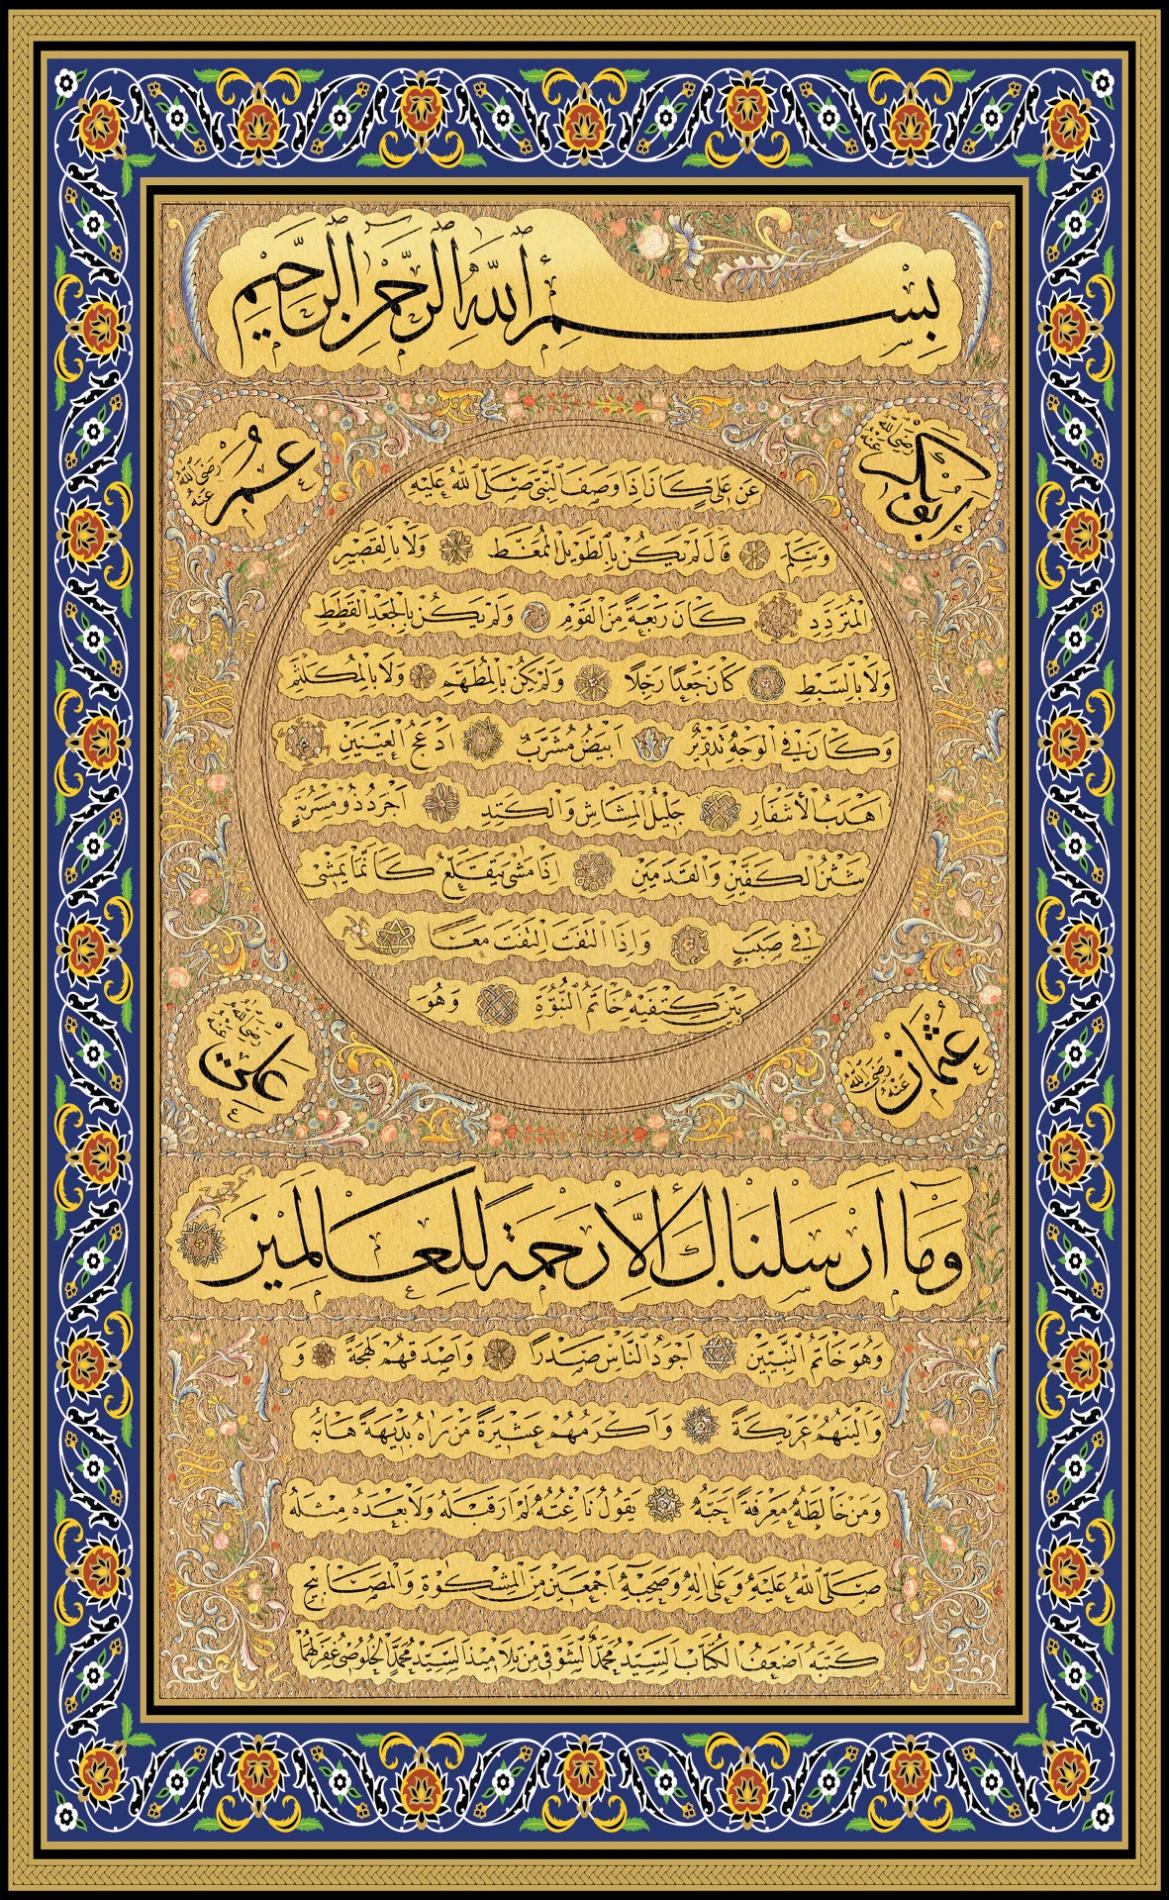 بِسْمِ اللهِ الرَّحْمٰنِ الرَّحِيمِ
أبو بكر رضي الله عنه
عمر رضي الله عنه
عَنْ عَلِيٍّ كَانَ إِذَا وَصَفَ النَّبِيَّ صَلَّى اللهُ عَلَيْهِ
وَسَلَّمَ قَالَ لَمْ يَكُنْ بِالطَّوِيلِ الْمُمَّغِطِ وَلَا بِالْقَصِيرِ
الْمُتَرَدِّدِ كَانَ رَبْعَةً مِنَ الْقَوْمِ وَلَمْ يَكُنْ بِالْجَعْدِ الْقَطَطِ
وَلَا بِالسَّبْطِ كَانَ جَعْدًا رَجِلًا وَلَمْ يَكُنْ بِالْمُطَهَّمِ وَلَا بِالْمُكَلْثَمِ
وَكَانَ فِي الْوَجْهِ تَدْوِيرٌ أَبْيَضُ مُشْرَبٌ أَدْعَجُ الْعَيْنَيْنِ
أَهْدَبُ الْأَشْفَارِ جَلِيلُ الْمُشَاشِ وَالْكَتِدِ أَجْرَدُ ذُو مَسْرُبَةٍ
شَثْنُ الْكَفَّيْنِ وَالْقَدَمَيْنِ إِذَا مَشَى يَتَقَلَّعُ كَأَنَّمَا يَمْشِي
فِي صَبَبٍ وَإِذَا الْتَفَتَ الْتَفَتَ مَعًا
بَيْنَ كَتِفَيْهِ خَاتَمُ النُّبُوَّةِ وَهُوَ
عثمان رضي الله عنه
علي رضي الله عنه
وَمَا أَرْسَلْنَاكَ إِلَّا رَحْمَةً لِلْعَالَمِينَ
وَهُوَ خَاتَمُ النَّبِيِّينَ أَجْوَدُ النَّاسِ صَدْرًا وَأَصْدَقُهُمْ لَهْجَةً وَ
وَأَلْيَنُهُمْ عَرِيكَةً وَأَكْرَمُهُمْ عَشِيرَةً مَنْ رَآهُ بَدِيهَةً هَابَهُ
وَمَنْ خَالَطَهُ مَعْرِفَةً أَحَبَّهُ يَقُولُ نَاعِتُهُ لَمْ أَرَ قَبْلَهُ وَلَا بَعْدَهُ مِثْلَهُ
صَلَّى اللهُ عَلَيْهِ وَعَلَى آلِهِ وَصَحْبِهِ أَجْمَعِينَ مِنَ الْمِشْكٰوةِ وَالْمَصَابِيحِ
كَتَبَهُ أَضْعَفُ الْكُتَّابِ السَّيِّدُ مُحَمَّدٌ الشَّوْقِي مِنْ تَلَامِيذِ السَّيِّدِ مُحَمَّدٍ الْخُلُوصِي غُفِرَ لَهُمَا